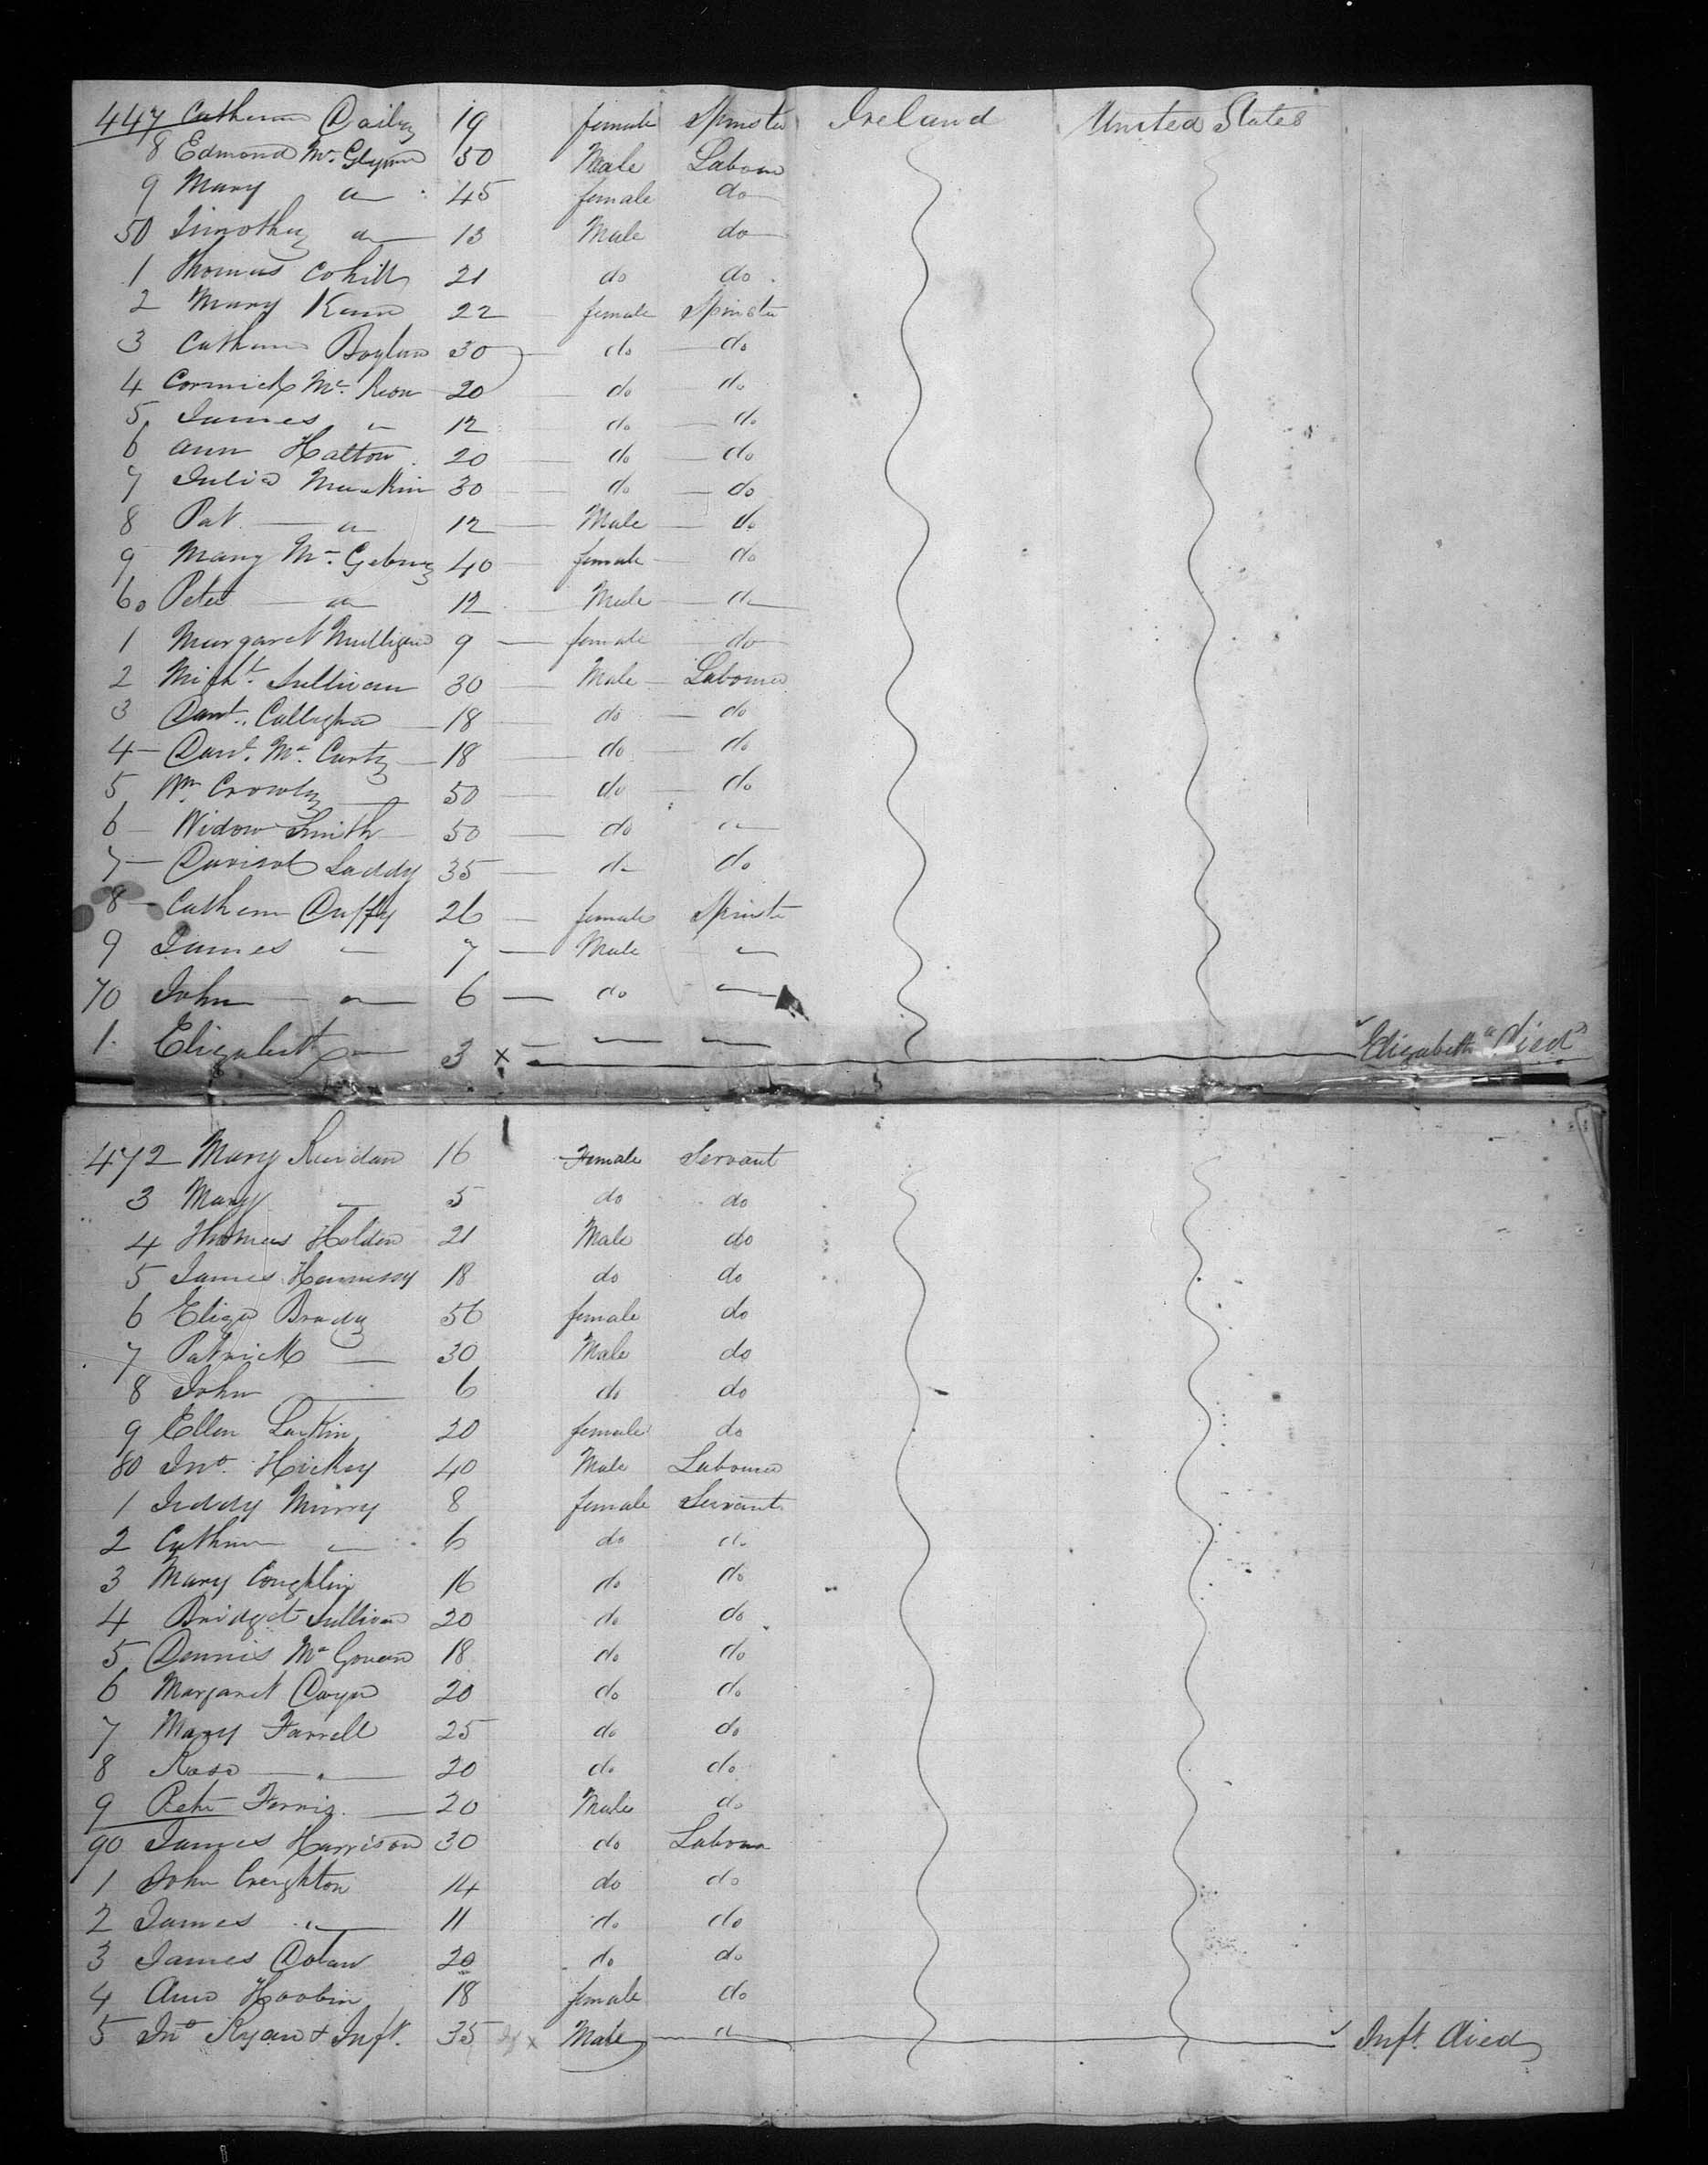 447 Catherine Dailey 19 female Spinster Ireland United States
8 Edmond Mc Glynn 50 Male Labour
9 Mary do 45 female do
50 Timothy do 13 Male do
1 Thomas Cohill 21 do do
2 Mary Kann 22 female Spinster
3 Catherine Boylan 30 do do
4 Cormick Mc Keon 20 do do
5 James " 12 do do
6 Ann Hatton 20 do do
7 Julia 30 do do
8 Pat " 12 Male do
9 Mary 40 female do
60 Peter " 12 Male do
1 Margaret Mulligan 9 female do
2 Michl. Sullivan 30 Male Labourer
3 Danl. Callaghan 18 do do
4 Danl. Mc Carty 18 do do
5 Wm Crowley 50 do do
6 Widow Smith 50 do "
7 Laddy 35 do do
8 Cathern Duffy 26 female Spinster
9 James " 7 Male "
70 John " 6 do "
1 Elizabeth " 3 x " " Elizabeth " Died
472 Mary 16 Female Servant
3 Mary " 5 do do
4 Thomas Holden 21 Male do
5 James Hennessy 18 do do
6 Eliza Brady 56 female do
7 Patrick " 30 Male do
8 John 6 do do
9 Ellen Larkin 20 female do
80 Jno. Hickey 40 Male Labourer
1 Murry 8 female Servant
2 Cathrn " 6 do do
3 Mary Coughlin 16 do do
4 Bridget Sullivan 20 do do
5 Dennis Mc Govern 18 do do
6 Margaret 20 do do
7 Mary Farrell 25 do do
8 Rose " 20 do do
9 Peter Ferris 20 Male do
90 James Harrison 30 do Labour
1 John Creighton 14 do do
2 James " 11 do do
3 James Dolan 20 do do
4 Ann Hoobin 18 female do
5 Jno Ryan & Inft. 35 x Male " Inft. Died